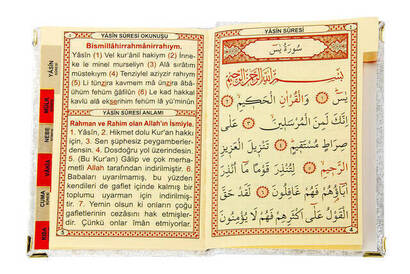 YÂSİN SÛRESİ OKUNUŞU
Bismillâhirrahmânirrahıym.
Yâsîn (1) Vel kur'ânil hakiym (2) İnne-
ke le minel murseliyn (3) Alâ sırâtım
müstekıym (4) Tenziylel aziyzir rahıym
(5) Li tünzira kavmen mâ ünzira âbâ-
ühüm fehüm ğâfilûn (6) Le kad hakkal
kavlü alâ ekserihim fehüm lâ yü'minûn
YÂSİN SÛRESİ ANLAMI
Rahman ve Rahim olan Allah'ın İsmiyle.
1. Yâsîn, 2. Hikmet dolu Kur'an hakkı
için, 3. Sen şüphesiz peygamberler-
densin. 4. Dosdoğru yol üzerindesin.
5. (Bu Kur'an) Gâlip ve çok merha-
metli Allah tarafından indirilmiştir. 6.
Babaları uyarılmamış, bu yüzden
kendileri de gaflet içinde kalmış bir
toplumu uyarman için indirilmiş-
tir. 7. Yemin olsun ki onların çoğu
gafletlerinin cezasını hak etmişler-
dir. Çünkü onlar iman etmiyorlar.
YÂSİN
MÜLK
NEBE
VAKIA
CUMA
YÂSİN SÛRESİ
سُورَةُ يٰسٓ
بِسْمِ اللّٰهِ الرَّحْمٰنِ الرَّحِيمِ
يٰسٓ ﴿١﴾ وَالْقُرْاٰنِ الْحَكِيمِ ﴿٢﴾
اِنَّكَ لَمِنَ الْمُرْسَلِينَ ﴿٣﴾ عَلٰى
صِرَاطٍ مُسْتَقِيمٍ ﴿٤﴾ تَنْزِيلَ الْعَزِيزِ
الرَّحِيمِ ﴿٥﴾ لِتُنْذِرَ قَوْمًا مَٓا اُنْذِرَ
اٰبَٓاؤُهُمْ فَهُمْ غَافِلُونَ ﴿٦﴾ لَقَدْ حَقَّ
الْقَوْلُ عَلٰٓى اَكْثَرِهِمْ فَهُمْ لَا يُؤْمِنُونَ